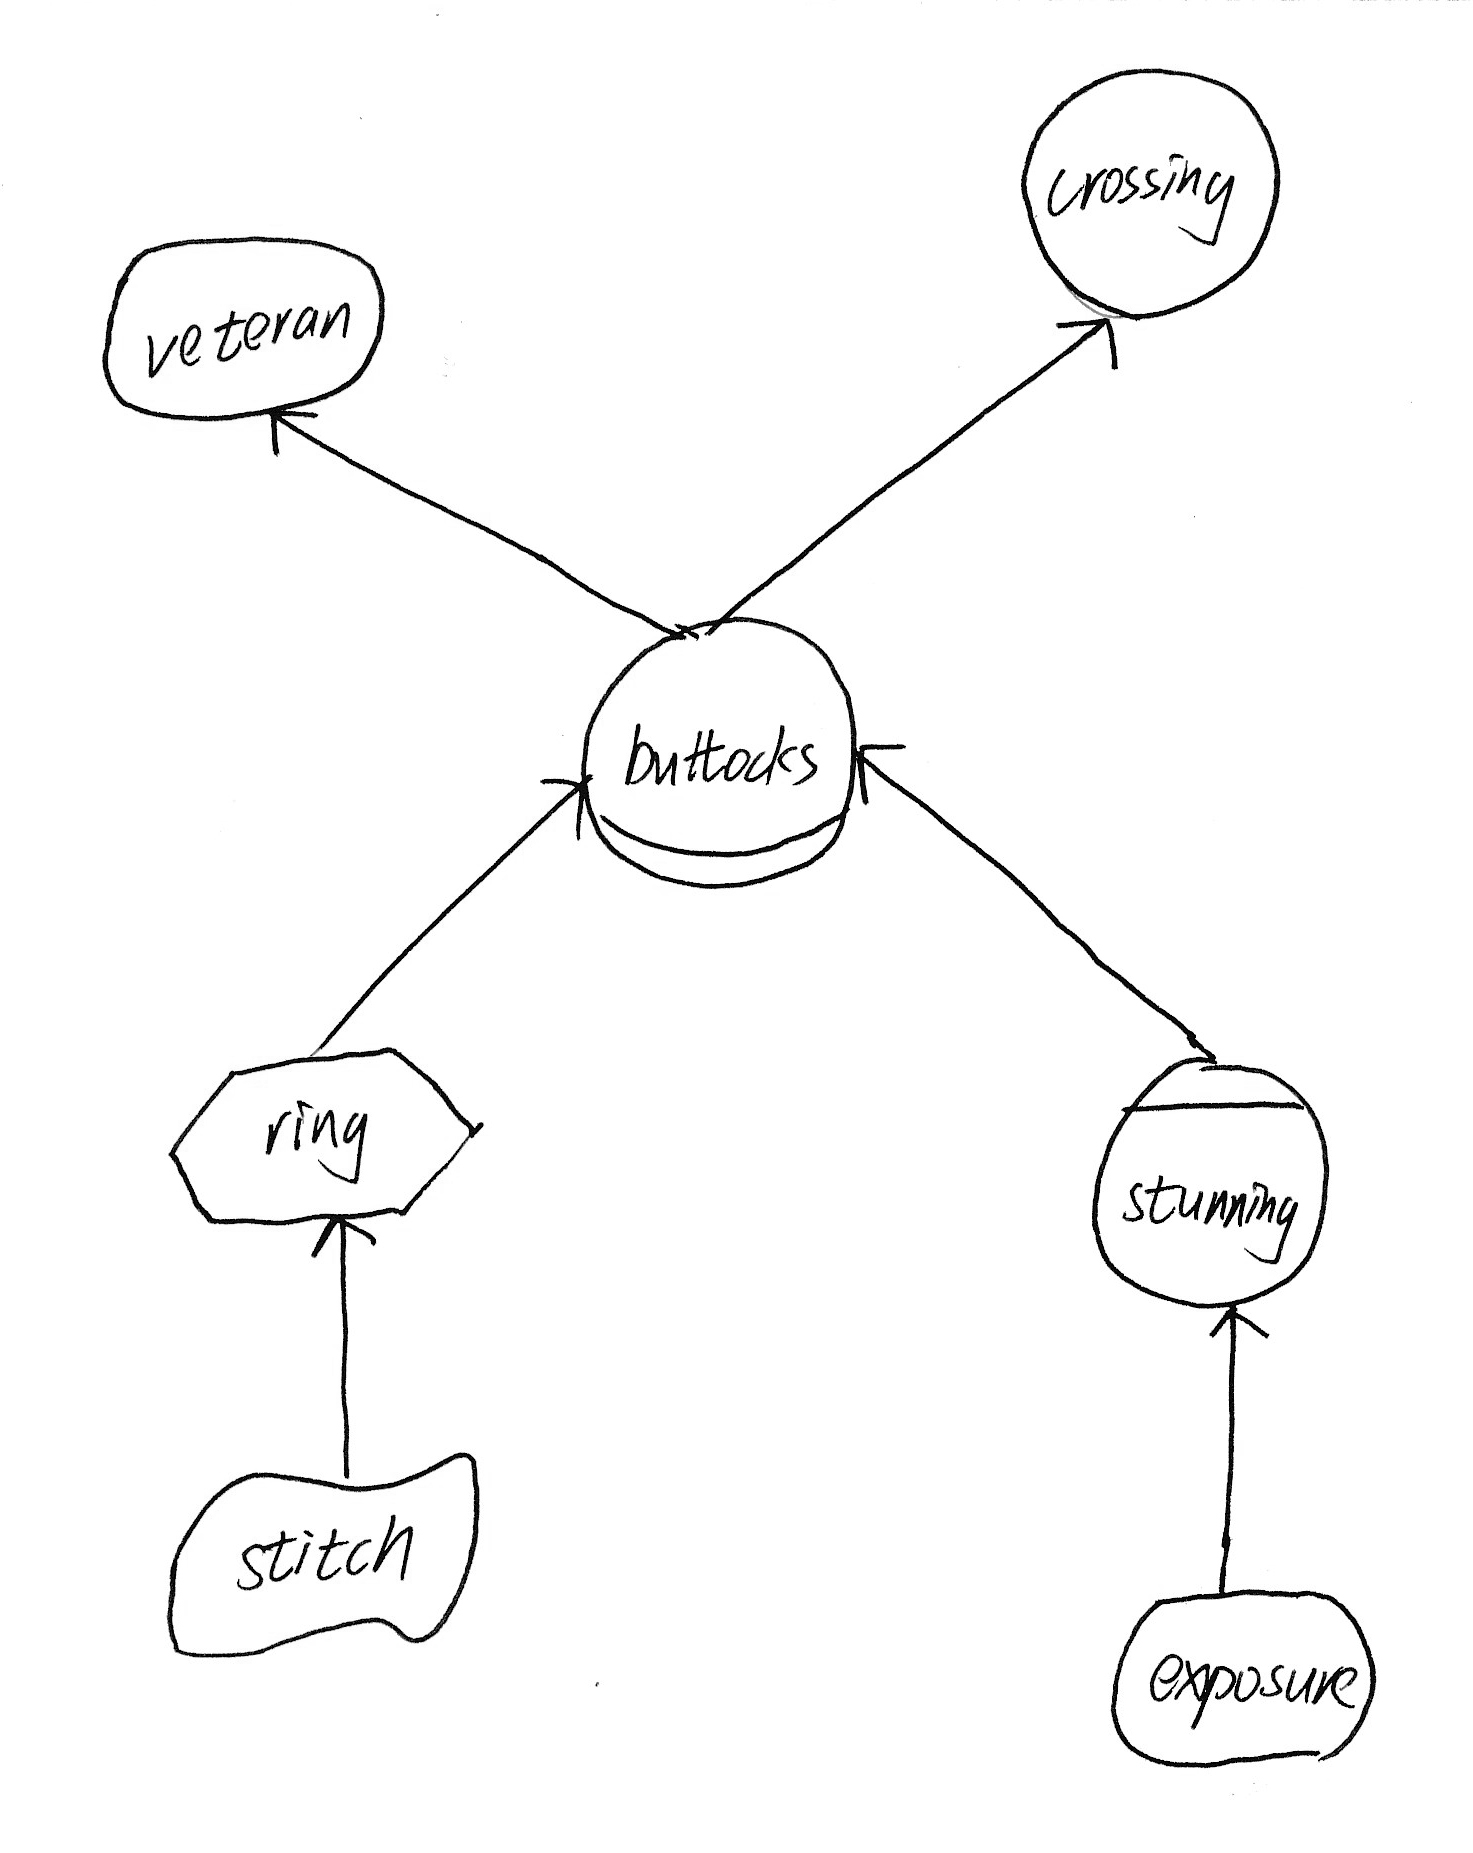 crossing
veteran
buttocks
ring
stunning
stitch
exposure